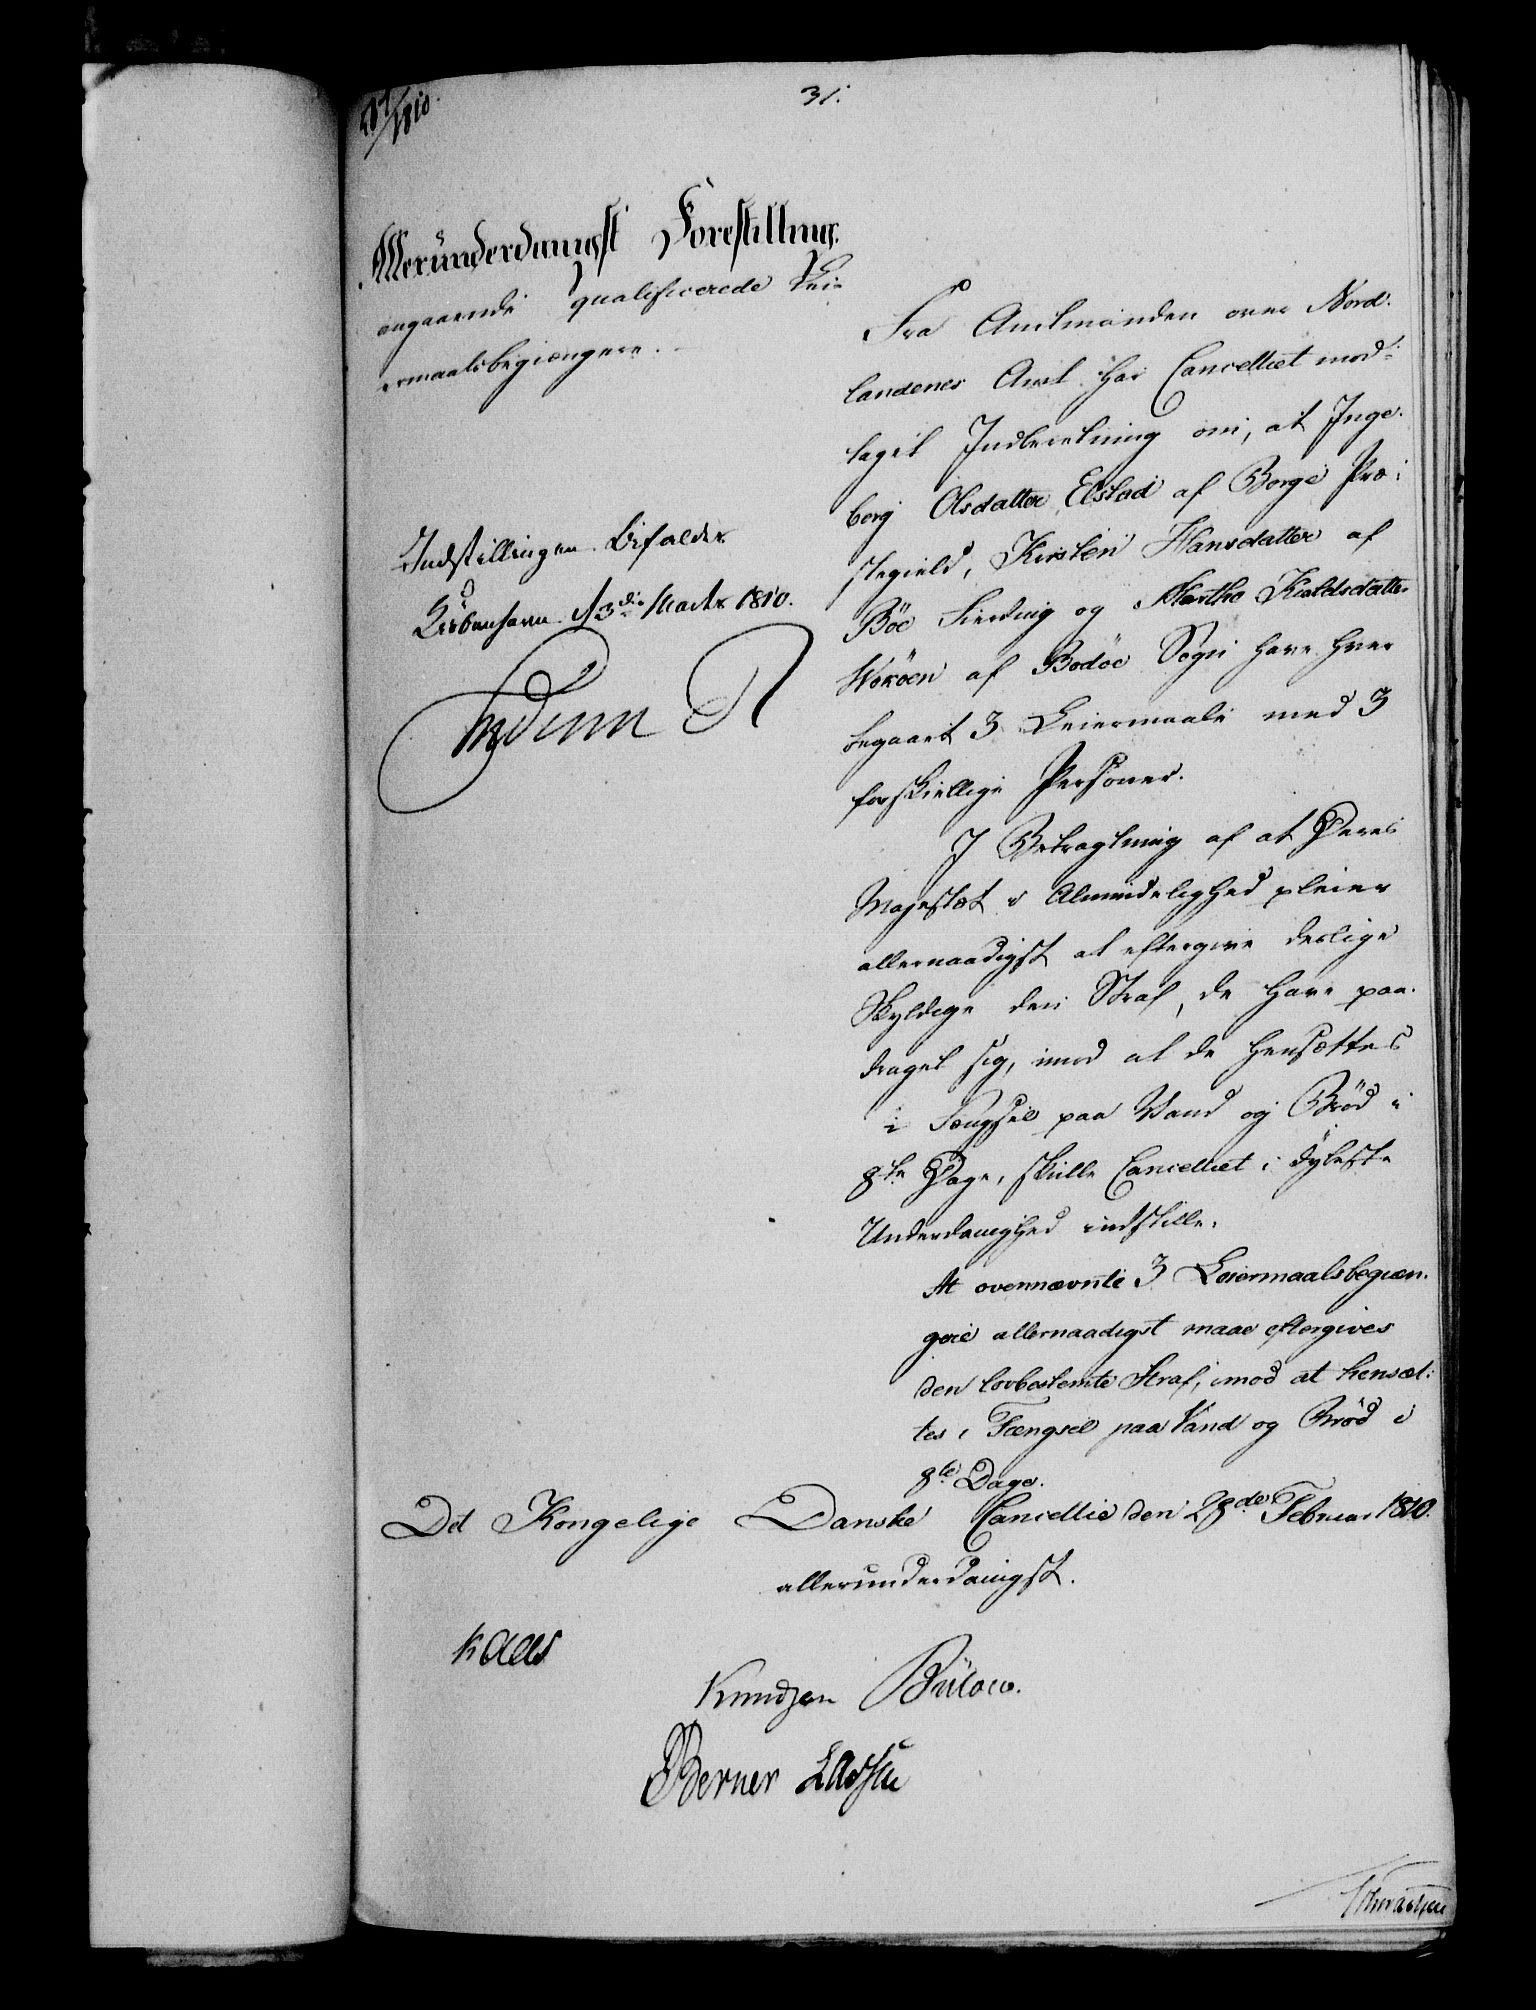 31.
Allerunderdanigst Forestilling.
angaaende qualificerede Lei-
ermaalsbegiængere.
Indstillingen bifaldes
Kiøbenhavn d 3die Marts 1810.
Frederik R
Fra Amtmanden over Nord-
landenes Amt har Cancelliet mod-
taget Indberetning om, at Inge-
borg Olsdatter Elstad af Borge Præ-
stegield, Kirsten Hansdatter af
Böe Fierding og Martha Kieldsdatter
af Bodöe Sogn have hver
begaaet 3 Leiermaale med 3
forskiellige Personer.
I Betragtning af at Deres
Majestæt i Almindelighed pleier
allernaadigst at eftergive deslige
Skyldige den Straf, de have paa-
draget sig, imod at de hensættes
i Fængsel paa Vand og Bröd i
8te Dage, skulle Cancelliet i dybeste
Underdanighed indstille:
At ovennævnte 3 Leiermaalsbegiæn-
gere allernaadigst maae eftergives
den lovbestemte Straf, imod at hensæt-
tes i Fængsel paa Vand og Bröd i
8te Dage.
Det Kongelige Danske Cancellie den 28de Februar 1810.
allerunderdanigst.
Kaas
Knudsen Bülow.
Berner Lassen